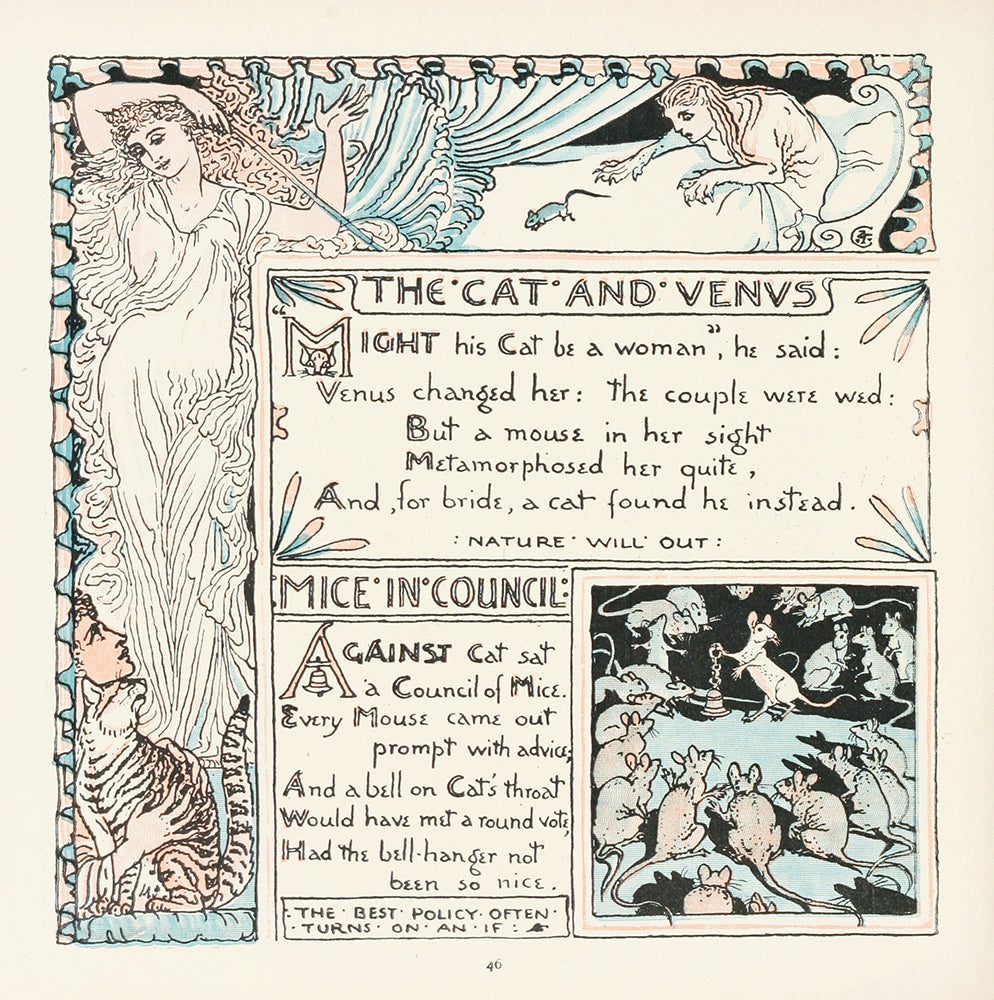 THE·CAT·AND·VENVS
"MIGHT his Cat be a woman", he said:
Venus changed her: the couple were wed:
But a mouse in her sight
Metamorphosed her quite,
And, for bride, a cat found he instead.
:NATURE· WILL· OUT:
MICE·IN·COUNCIL:
AGAINST Cat sat
a Council of Mice.
Every Mouse came out
prompt with advice;
And a bell on Cat's throat
Would have met a round vote,
Had the bell-hanger not
been so nice.
:THE·BEST·POLICY·OFTEN·
·TURNS·ON·AN·IF:
46